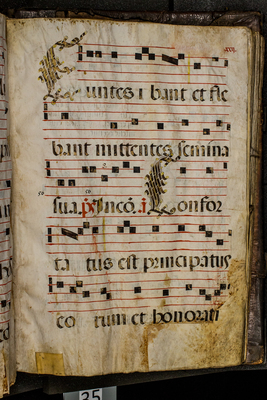 Euntes ibant et fle
bant mittentes semina
sua. ps. In cō. i Confor
ta tus est principatus
eo rum et honorati
35